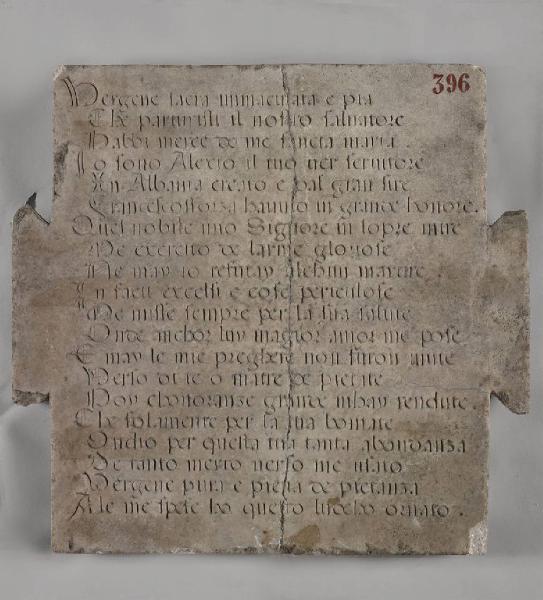 396
Vergene sacra immaculata e pia
Che parturisti il nostro salvatore
Habbi merce de me sancta maria.
Io sono Alexio il tuo ver servitore
In Albania creato e dal gran sire
Francescosforza havuto in grande honore.
Quel nobile mio Signore in sopre mire
Me exercito de larme gloriose
Ne may io refutay alchun martire
In facti excelsi e cose periculose
Me misse sempre per la sua salute
Onde me hor luy magior amor me pose
E may le mie preghere non furon mute
Verso di te o matre de pietate
Poy chonoranze grande mhay rendute.
Che solamente per la tua bontate
Ondio per questa tua tanta abondanza
De tanto merto verso me usato
Vergene pura e piena de pietanza
A le me spese ho questo luocho ornato.